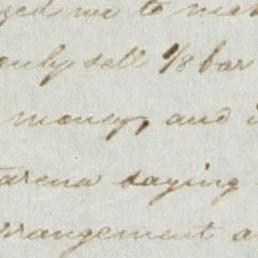 ged me to mak
only sell 1/8 bar
money, and i
arena saying
rrangement a